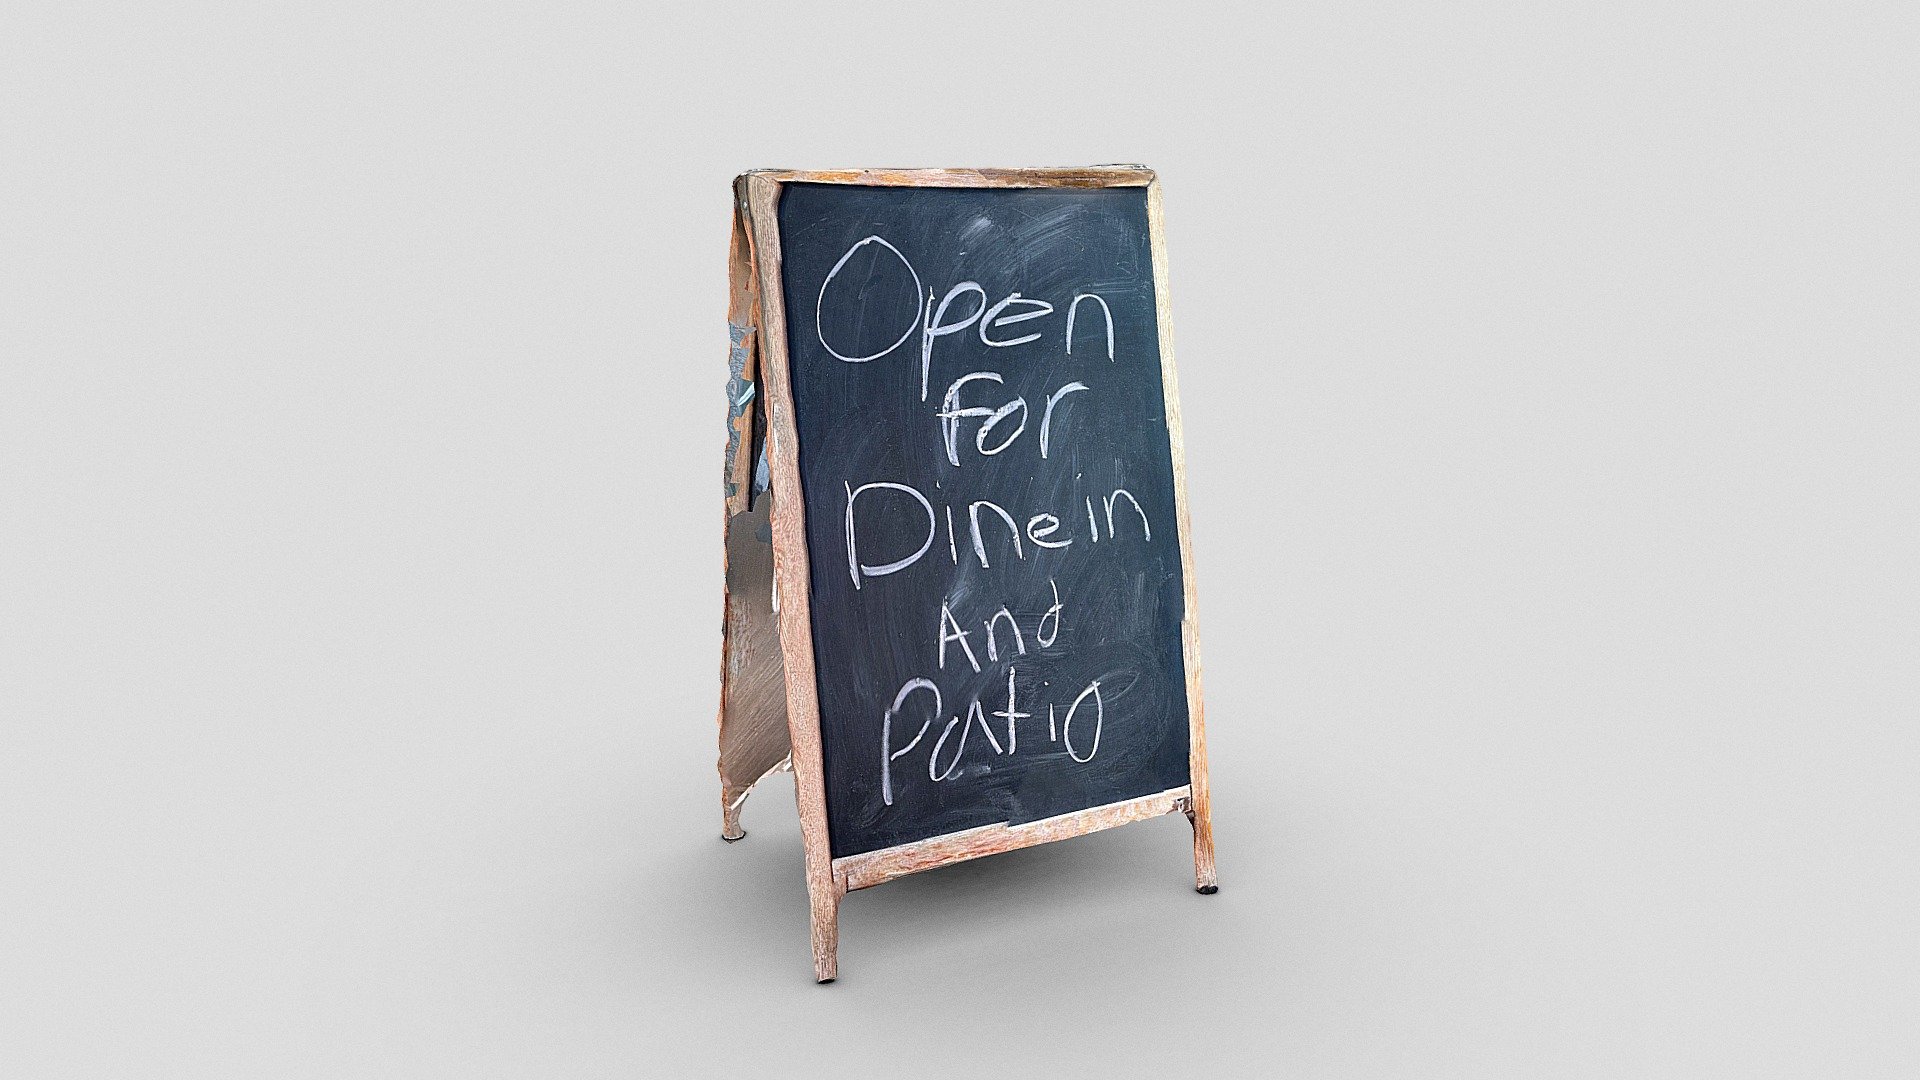 Open
For
Dine in
And
Patio